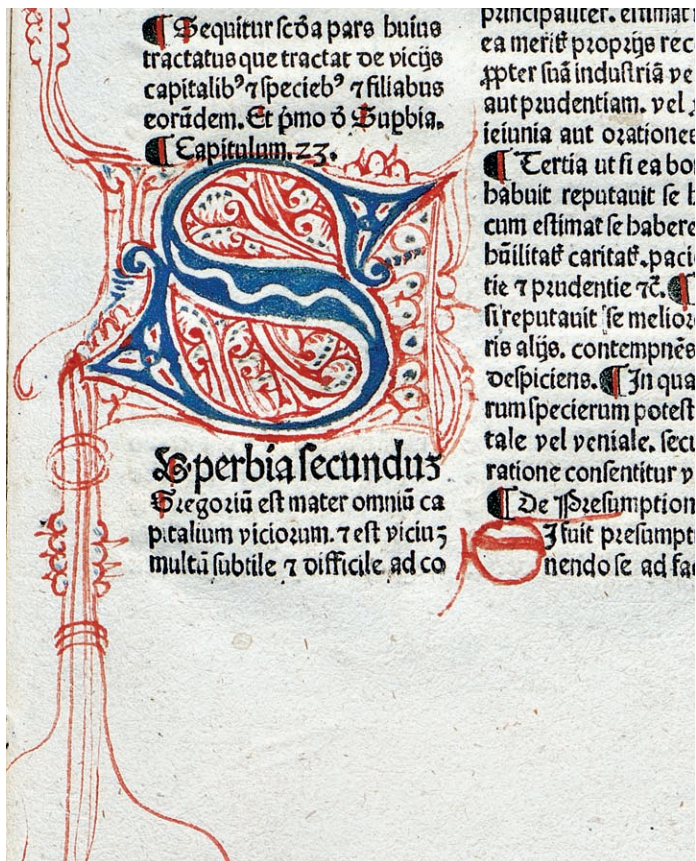 ¶ Sequitur scd̄a pars huius
tractatus que tractat de vicijs
capitalibꝰ ⁊ speciebꝰ ⁊ filiabus
eorūdem. Et pͥmo d̄ Suꝑbia.
¶ Capitulum. 23.
S
Uperbia secunduꝫ
Gregoriū est mater omniū ca
pitalium viciorum. ⁊ est viciuꝫ
multū subtile ⁊ difficile ad co
principaliter. estimat
ea merit proprijs rec
ꝓpter suā industriā ve
aut prudentiam. vel
ieiunia aut orationes
¶ Tertia ut si ea bo
habuit reputauit se
cum estimat se habere
hūilitat caritat. paci
tie ⁊ prudentie ⁊c̄. ¶
si reputauit se melior
ris alijs. contempnēs
despiciens. ¶ In qua
rum specierum potest
tale vel veniale. secu
ratione consentitur v
¶ De Presumption
S
I fuit presumpt
nendo se ad fac